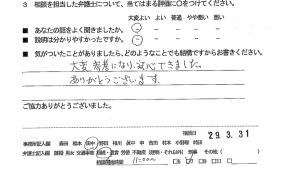 3 相談を担当した弁護士について、当てはまる評価に○をつけてください。
大変よい よい 普通 やや悪い 悪い
■ あなたの話をよく聞きましたか。
■ 説明は分かりやすかったですか。
■ 気がついたことがありましたら、どのようなことでも結構ですからお書きください。
大変参考になり、安心できました。
ありがとうございます。
ご協力ありがとうございました。
相談日 29.3.31
事務所記入欄
弁護士記入欄